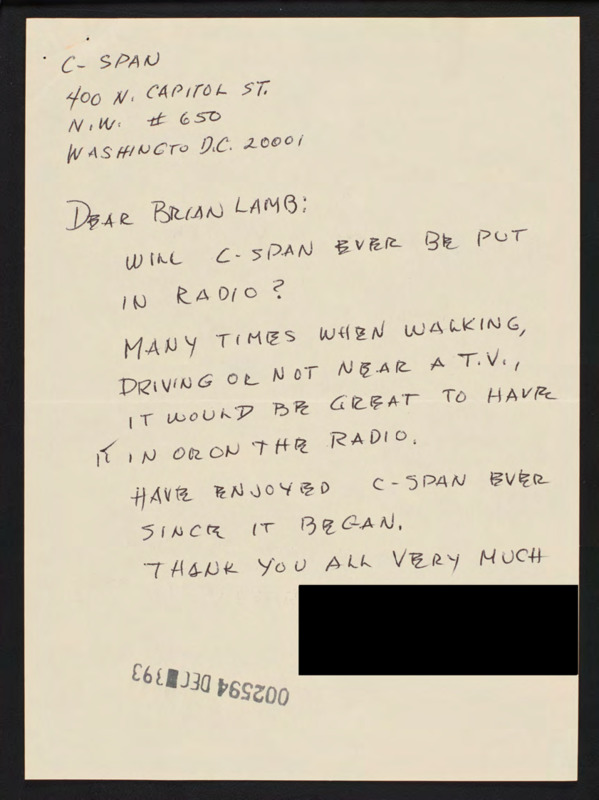 C-SPAN
400 N. CAPITOL ST.
N.W. # 650
WASHINGTO D.C. 20001
DEAR BRIAN LAMB:
WILL C-SPAN EVER BE PUT
IN RADIO?
MANY TIMES WHEN WALKING,
DRIVING OR NOT NEAR A T.V.,
IT WOULD BE GREAT TO HAVE
IT IN OR ON THE RADIO.
HAVE ENJOYED C-SPAN EVER
SINCE IT BEGAN.
THANK YOU ALL VERY MUCH
002594 DEC